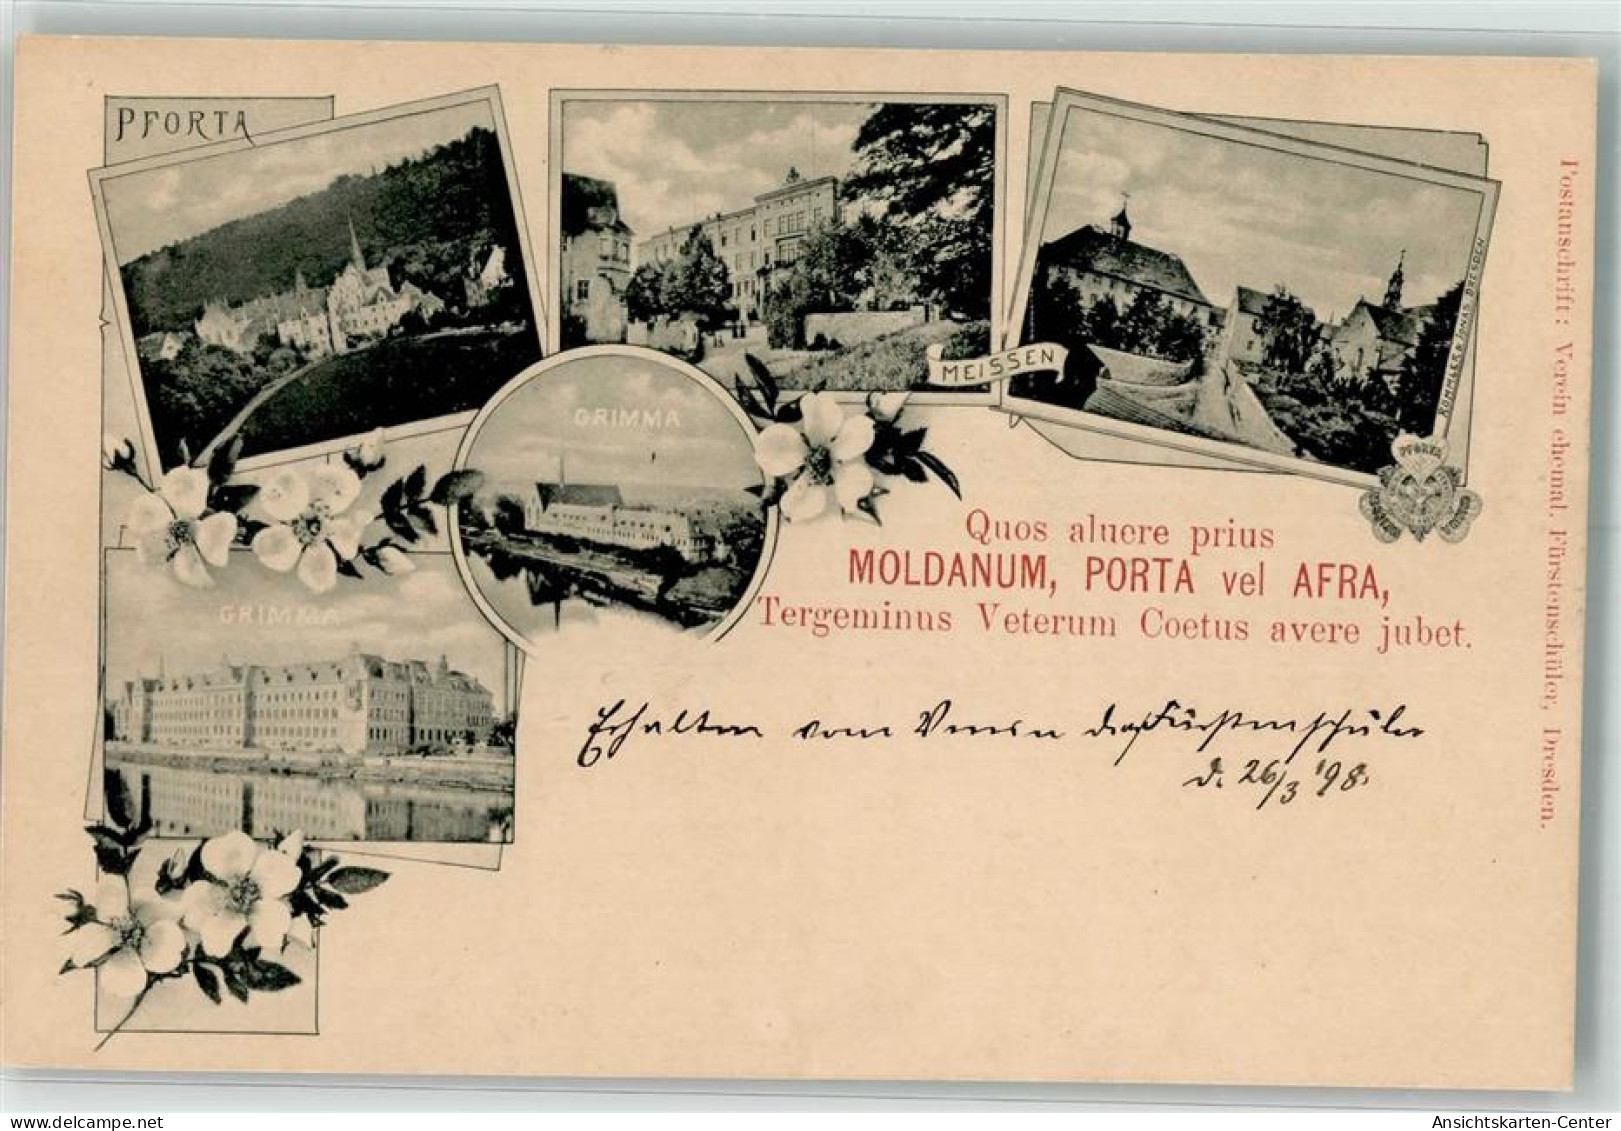 PFORTA
MEISSEN
RÖMMLER & JONAS DRESDEN
GRIMMA
GRIMMA
PFORTA
Quos aluere prius
MOLDANUM, PORTA vel AFRA,
Tergeminus Veterum Coetus avere jubet.
Erhalten vom Verein der Fürstenschüler
d. 26/3 '98.
Postanschrift: Verein ehemal. Fürstenschüler, Dresden.
Ansichtskarten-Center